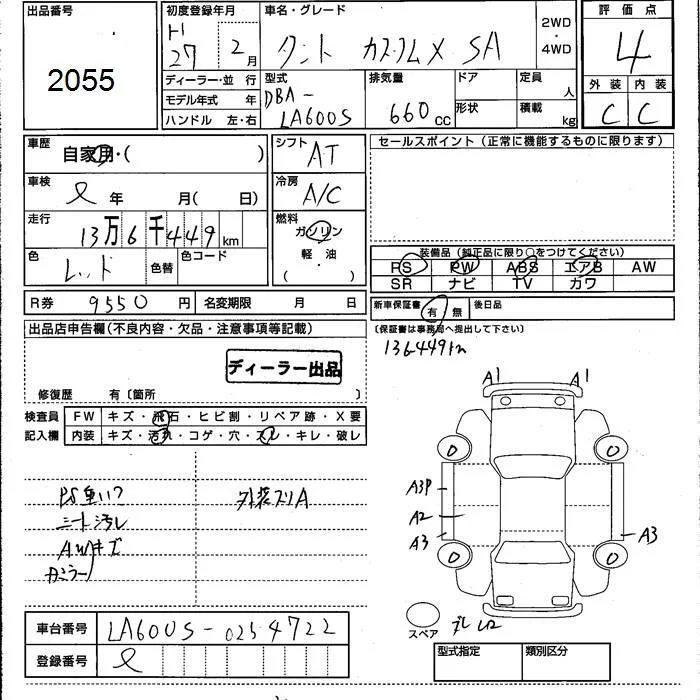 出品番号
2055
初度登録年月
H
27年 2月
車名・グレード
タント カスタムX SA
2WD
・
4WD
評価点
4
外装 内装
C C
ディーラー・並行
モデル年式 年
ハンドル 左・右
型式
DBA-
LA600S
排気量
660cc
ドア
形状
定員 人
積載 kg
車歴
自家用・( )
車検
年 月( 日)
走行
13万6千449km
色
レッド
色替
色コード
シフト
AT
冷房
A/C
燃料
ガソリン
軽・油
( )
セールスポイント(正常に機能するものに限ります)
装備品(純正品に限り○をつけてください)
PS PW ABS エアB AW
SR ナビ TV カワ
R券 9550円
名変期限 月 日
新車保証書 有 無
後日品
(保証書は事務局へ提出して下さい)
136449km
出品店申告欄(不良内容・欠品・注意事項等記載)
ディーラー出品
修復歴 有〔箇所 〕
検査員
記入欄
FW キズ・飛石・ヒビ割・リペア跡・X要
内装 キズ・汚れ・コゲ・穴・スレ・キレ・破レ
シート汚レ
AWキズ
外装スリA
A1 A1
A3P
A2
A3
A3
スペア
車台番号 LA600S-0254722
登録番号
型式指定 類別区分